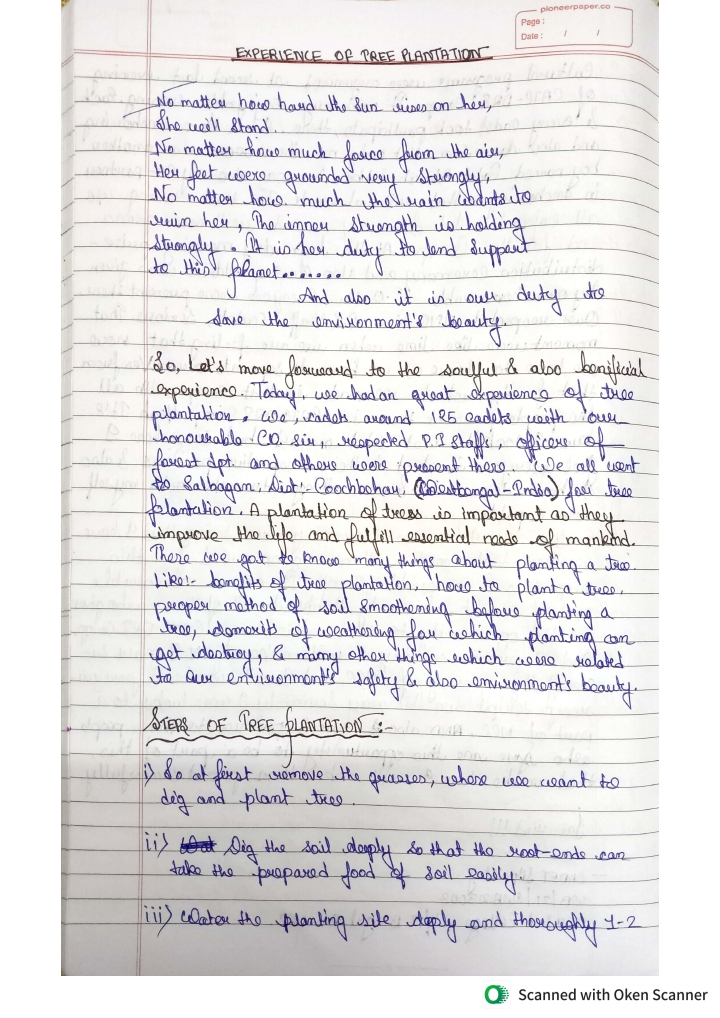 pioneerpaper.co
Page :
Date : / /
EXPERIENCE OF TREE PLANTATION
No matter how hard the sun rises on her,
She will stand.
No matter how much force from the air,
Her feet were grounded very strongly,
No matter how much the rain wants to
ruin her, The inner strength is holding
strongly. It is her duty to lend support
to this planet.......
And also it is our duty to
save the environment's beauty.
So, Let's move forward to the soulful & also benificial
experience. Today, we had an great experience of tree
plantation. We, cadets around 125 cadets with our
honourable CO. sir, respected P.I staffs, officers of
forest dpt. and others were present there. We all went
to Salbagan, Dist:- Coochbehar, (Westbengal-India) for tree
plantation. A plantation of tress is important as they
improve the life and fulfill essential needs of mankind.
There we got to know many things about planting a tree.
Like:- benefits of tree plantation, how to plant a tree,
proper method of soil smoothening before planting a
tree, demerits of weathering for which planting can
get destroy, & many other things which were related
to our environment's safety & also environment's beauty.
STEPS OF TREE PLANTATION :-
i) So at first remove the grasses, where we want to
dig and plant tree.
ii) Dig the soil deeply so that the root-ends can
take the prepared food of soil easily.
iii) Water the planting site deply and thoroughly 1-2
Scanned with Oken Scanner